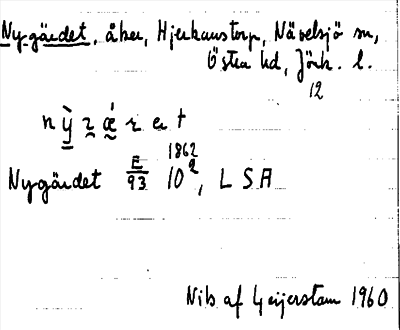 Nygärdet, åker, Hjerkanstorp, Nävelsjö sn,
Östra hd, Jönk. l.
12
1862
Nygärdet E/93 10², L S A
Nils af Geijerstam 1960